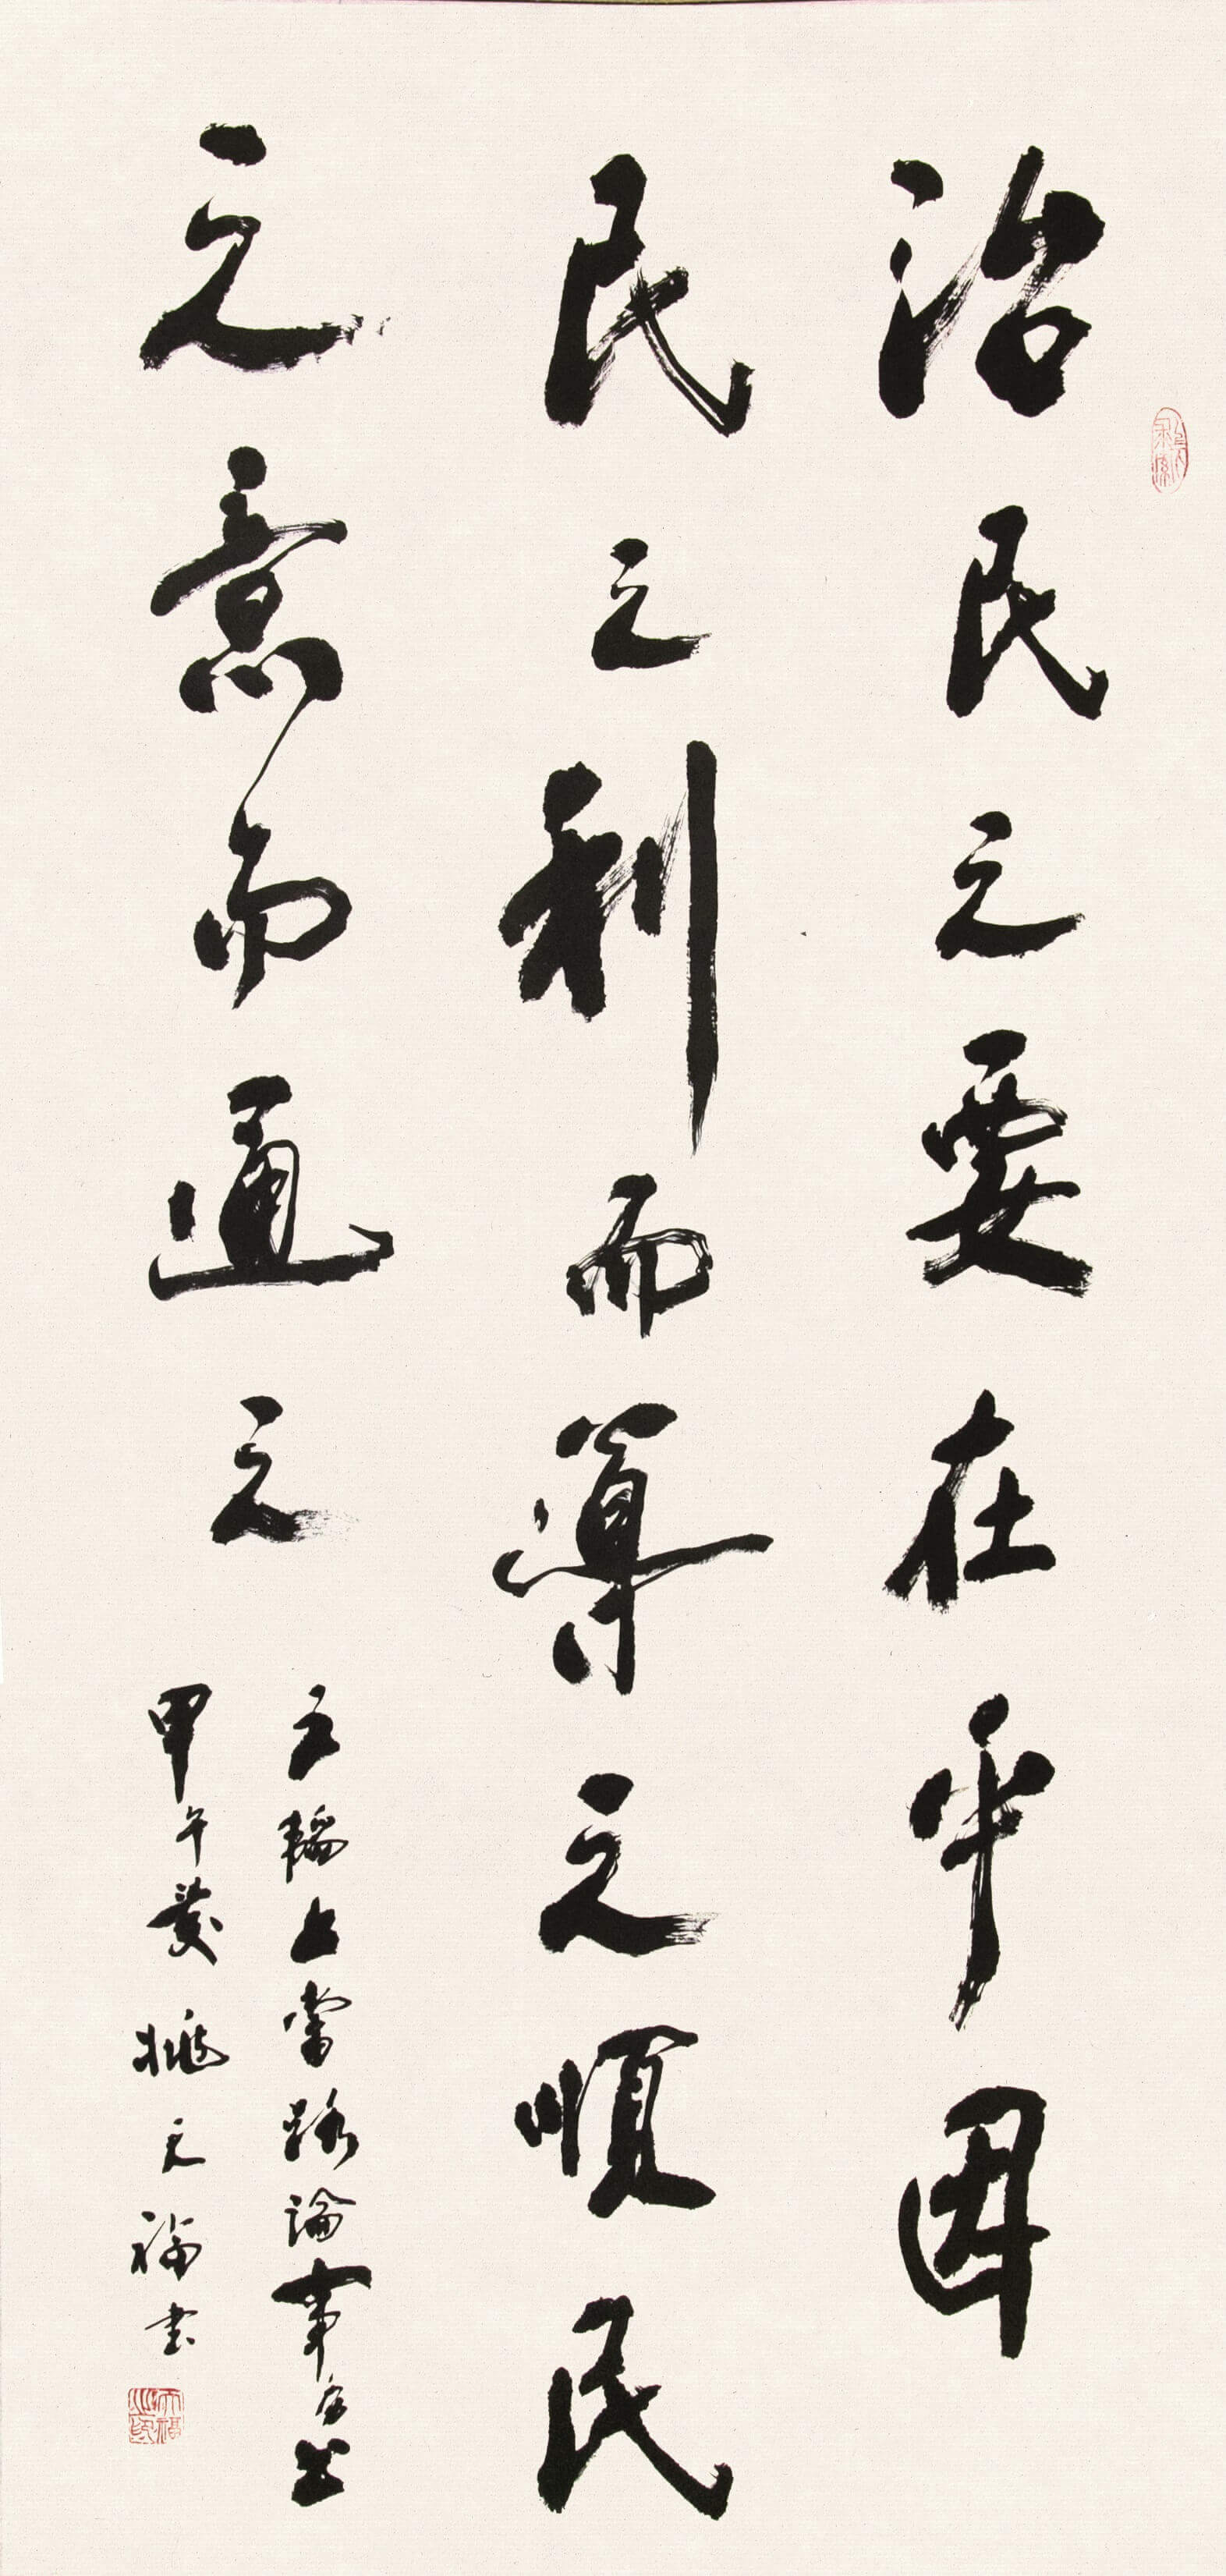 治民之要在乎因
民之利而導之順民
之意而通之
王韜上當路論事書
甲午夏姚天福書